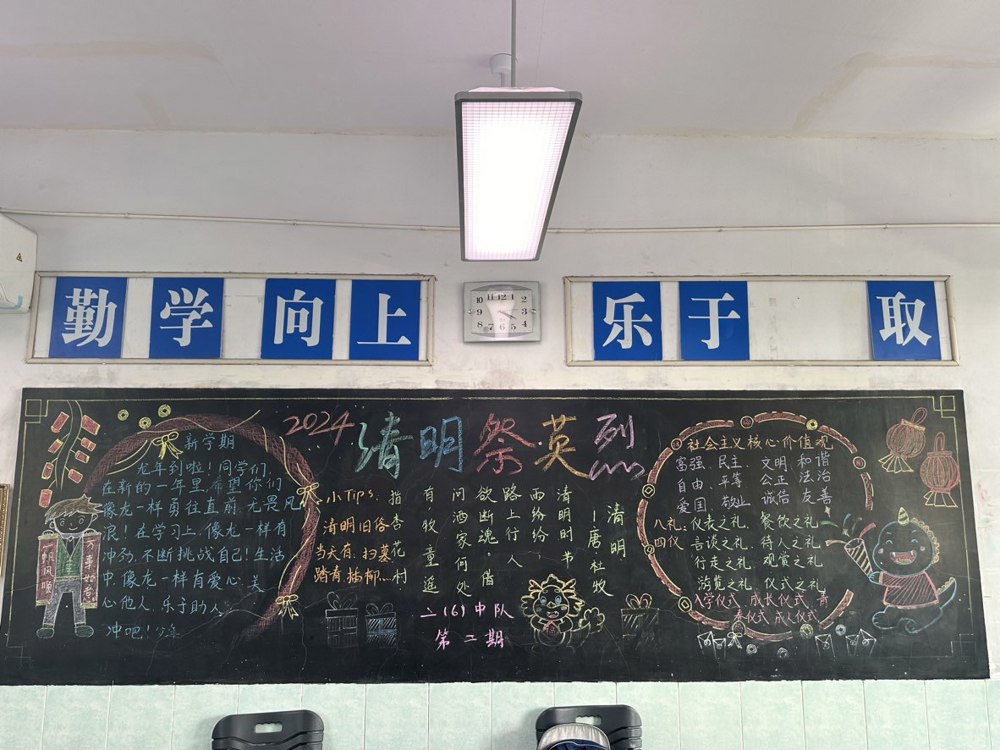 勤学向上
乐于 取
2024清明祭英烈
新学期
龙年到啦！同学们，
在新的一年里，希望你们
像龙一样勇往直前，无畏风
浪！在学习上，像龙一样有
冲劲，不断挑战自己！生活
中，像龙一样有爱心，关
心他人，乐于助人。
冲吧！少年
万事如意
帆风顺
小Tips：
清明旧俗
当大有：扫墓
踏青 插柳…
清明
—唐·杜牧
清明时节
雨纷纷
路上行人
欲断魂。借
问酒家何处
有，牧童遥
指杏花村
二(6)中队
第二期
社会主义核心价值观
富强、民主、文明、和谐
自由、平等、公正、法治
爱国、敬业、诚信、友善
八礼：仪表之礼、餐饮之礼
四仪 言谈之礼、待人之礼
行走之礼、观赏之礼
游览之礼、仪式之礼
入学仪式、成长仪式、青
春仪式、成人仪式